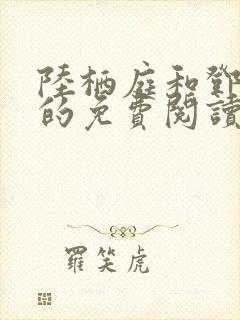 陸栖庭和鄧
的免費閱讀
羅笑虎